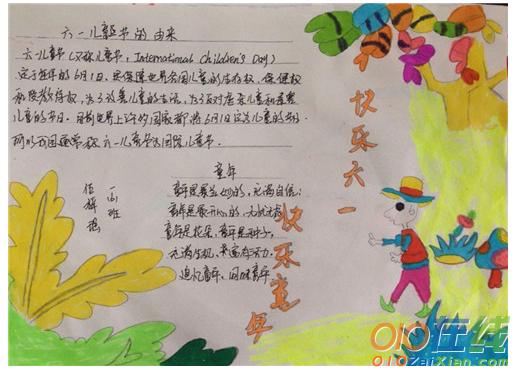 六一儿童节的由来
六一儿童节(又称儿童节, International Children's Day)
定于每年的6月1日,是保障世界各国儿童的生存权、保健权
和受教育权,为了改善儿童的生活,为了反对虐杀儿童和毒害
儿童的节日。目前世界上许多国家都将6月1日定为儿童的节日
所以我国通常称六一儿童节为国际儿童节.
快乐六一
童年
童年是的,充满自信;
童年是最开心的,无忧无虑
童年是花朵,童年是种子,
充满生机,富有活力.
追忆童年,回味童年
快乐童年
班
010在线
010ZaiXian.com